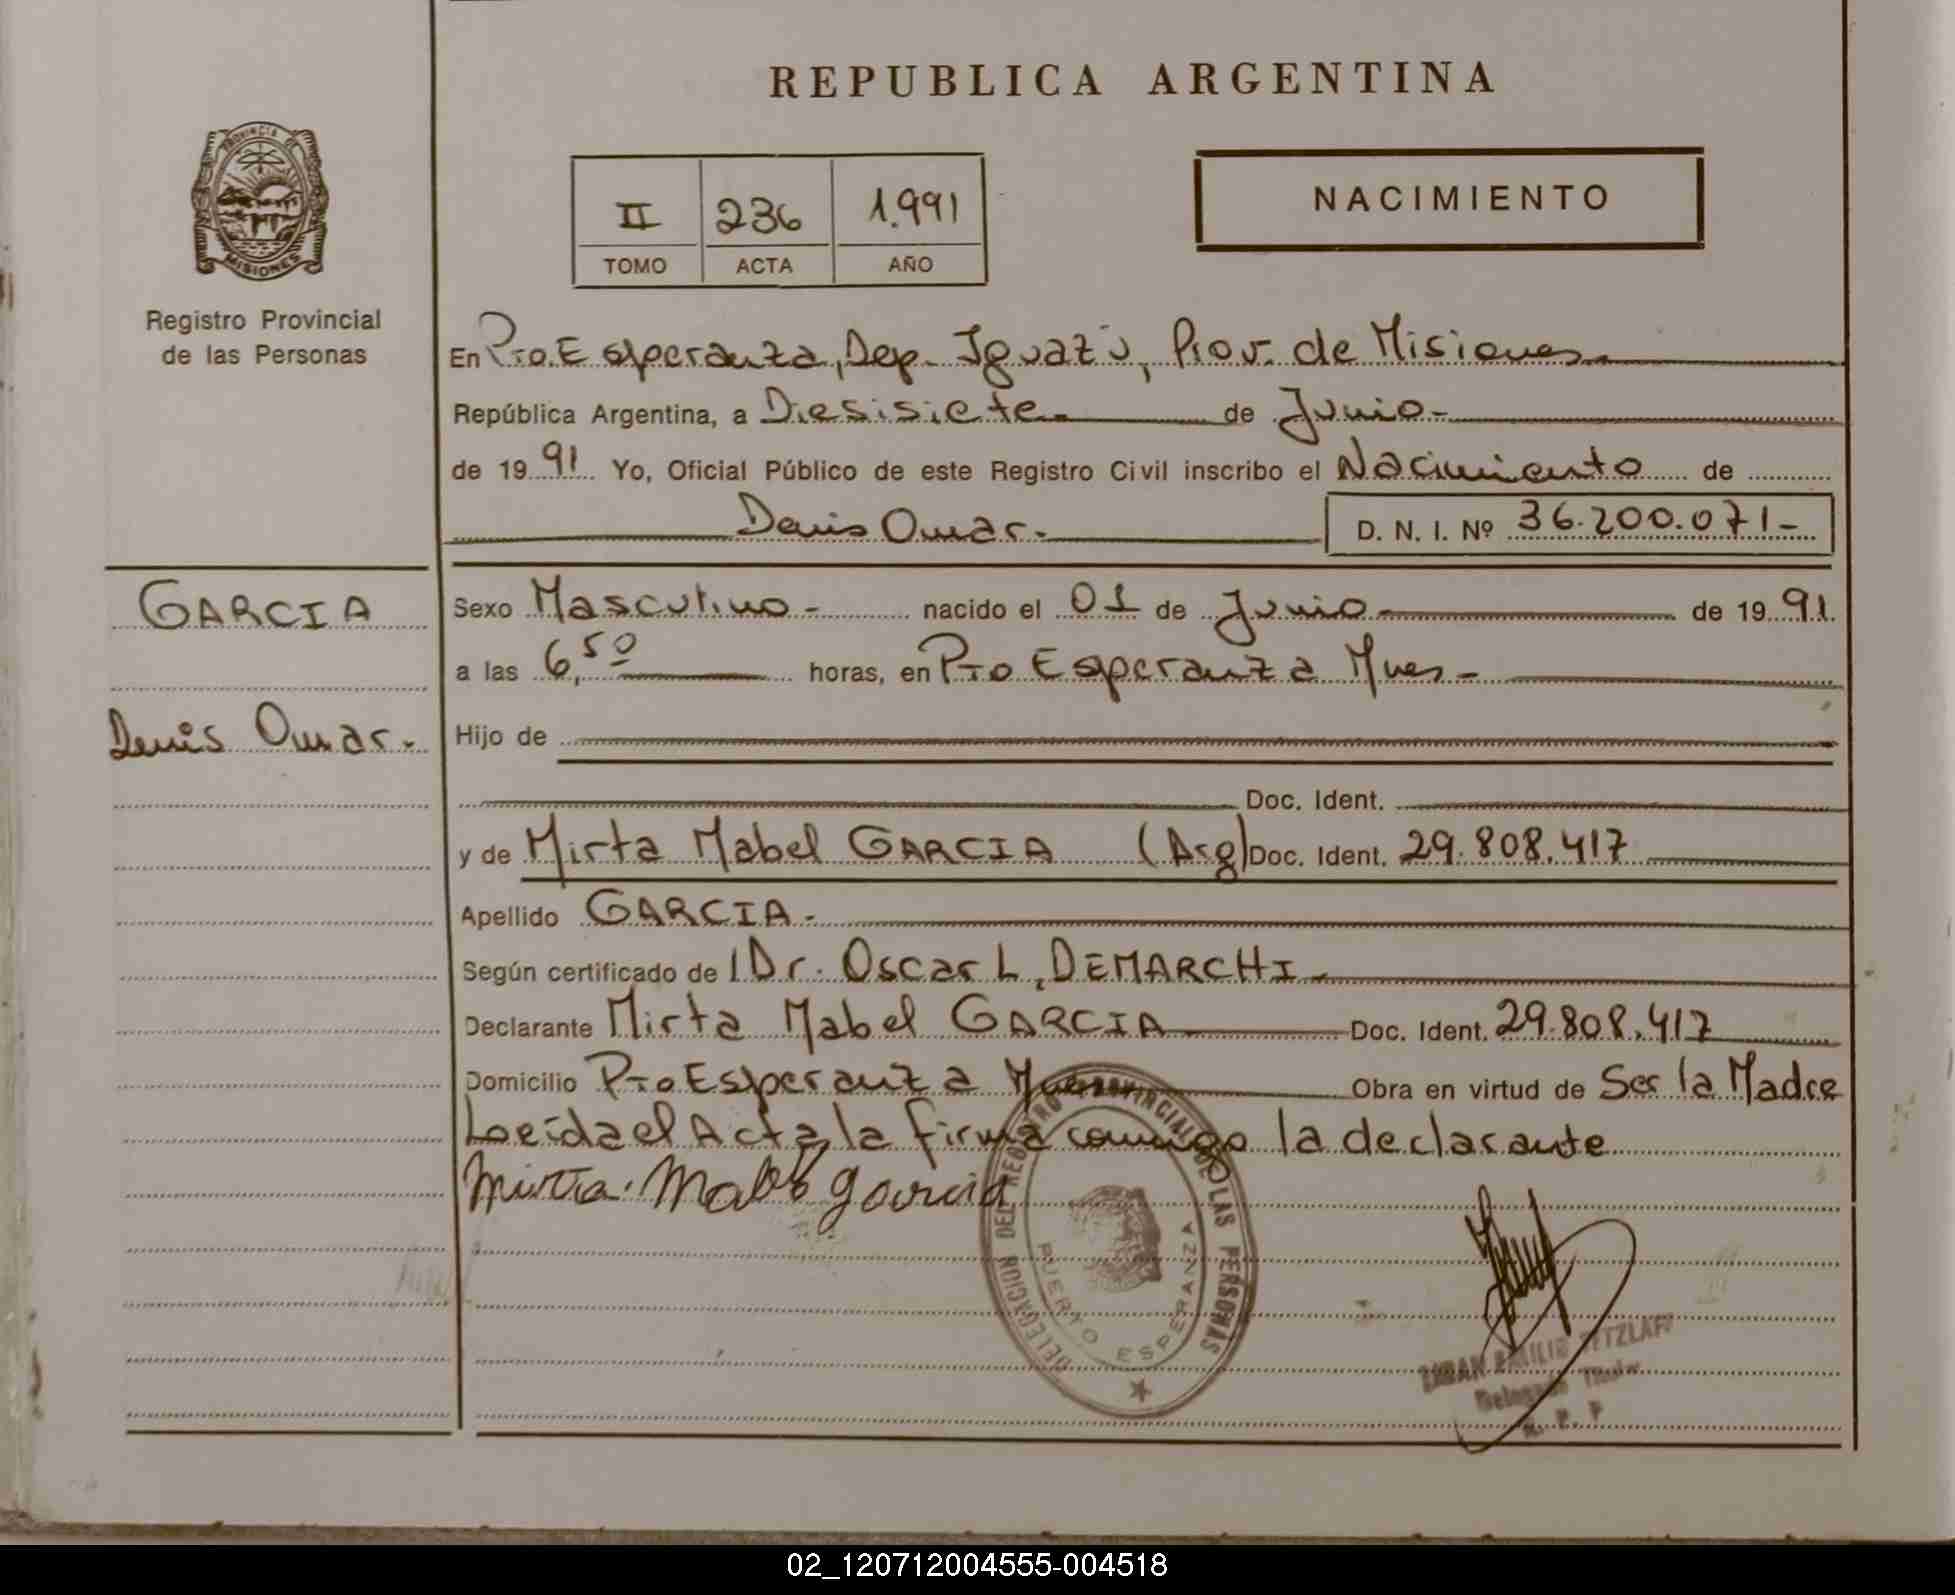 REPUBLICA ARGENTINA
PROVINCIA DE
MISIONES
Registro Provincial
de las Personas
II 236 1.991
TOMO ACTA AÑO
NACIMIENTO
En Pto. Esperanza, Dep. Iguazú, Prov. de Misiones.
República Argentina, a Diesisiete. de Junio-
de 1991 Yo, Oficial Público de este Registro Civil inscribo el Nacimiento de
Denis Omar.
D. N. I. Nº 36.200.071-
GARCIA
Denis Omar.
Sexo Masculino- nacido el 01 de Junio de 1991.
a las 6,50 horas, en Pto Esperanza Mnes-
Hijo de
Doc. Ident.
y de Mirta Mabel GARCIA (Arg) Doc. Ident. 29.808.417
Apellido GARCIA.-
Según certificado de Dr. Oscar L, DEMARCHI-
Declarante Mirta Mabel GARCIA Doc. Ident. 29.808.417
Domicilio Pto Esperanza Mnes Obra en virtud de Ser la Madre
Leída el Acta, la firma conmigo la declarante
Mirta Mabel Garcia
DELEGACION DEL REGISTRO PROVINCIAL DE LAS PERSONAS
PUERTO ESPERANZA
EMILIO
Delegado Titular
R. P. P
02_120712004555-004518